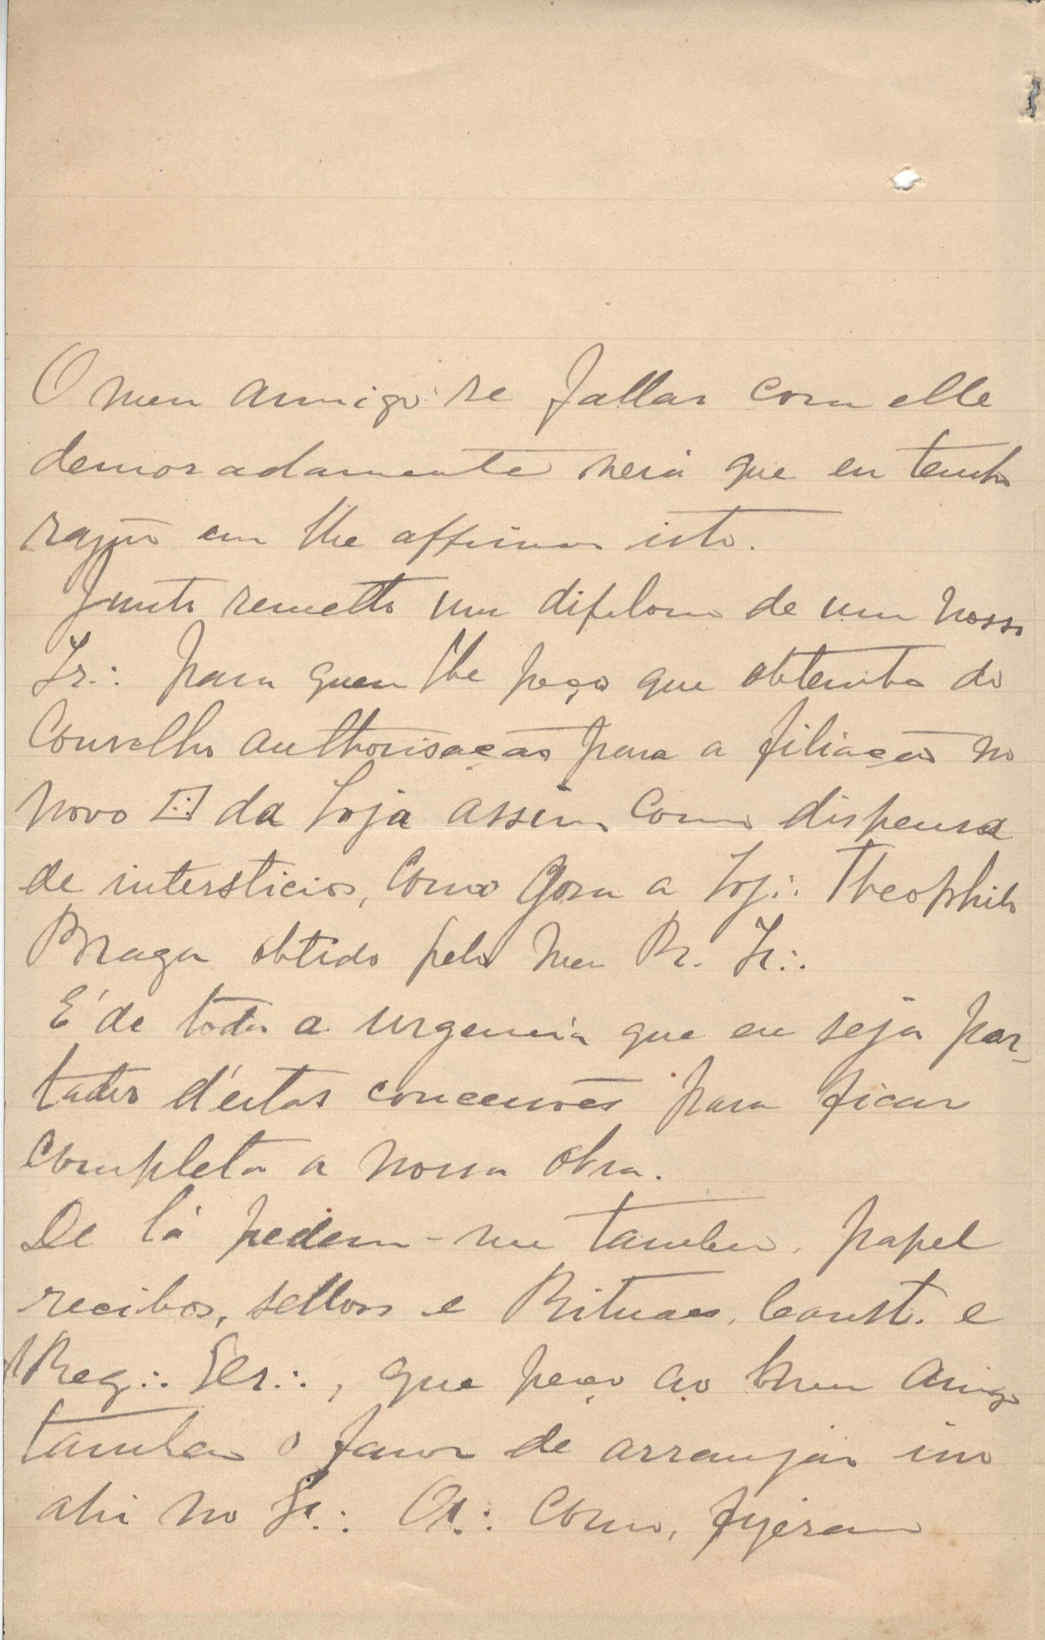 O meu amigo se fallar com elle
demoradamente verá que eu tenho
razão em lhe affirmar isto.
Junto remetto um diploma de um nosso
Ir∴ para quem lhe peço que obtenha do
Conselho authorisação para a filiação no
novo da Loja assim como dispensa
de intersticios, como gosa a Loj∴ Theophilo
Braga obtido pelo meu Pr. Ir∴
É de toda a urgencia que eu seja por-
tador d'estas concessões para ficar
completa a nossa obra.
De lá pedem-me tambem papel
recibos, sellos e Rituaes, Const. e
Reg∴ Ger∴, que peço ao bom amigo
tambem o favor de arranjar
ahi no Gr∴ Or∴ como, fizeram